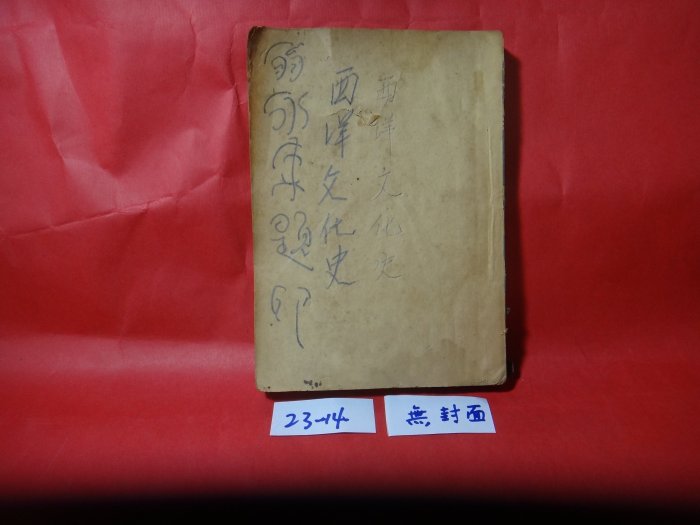 西洋文化史
西洋文化史
題
23-14
無封面